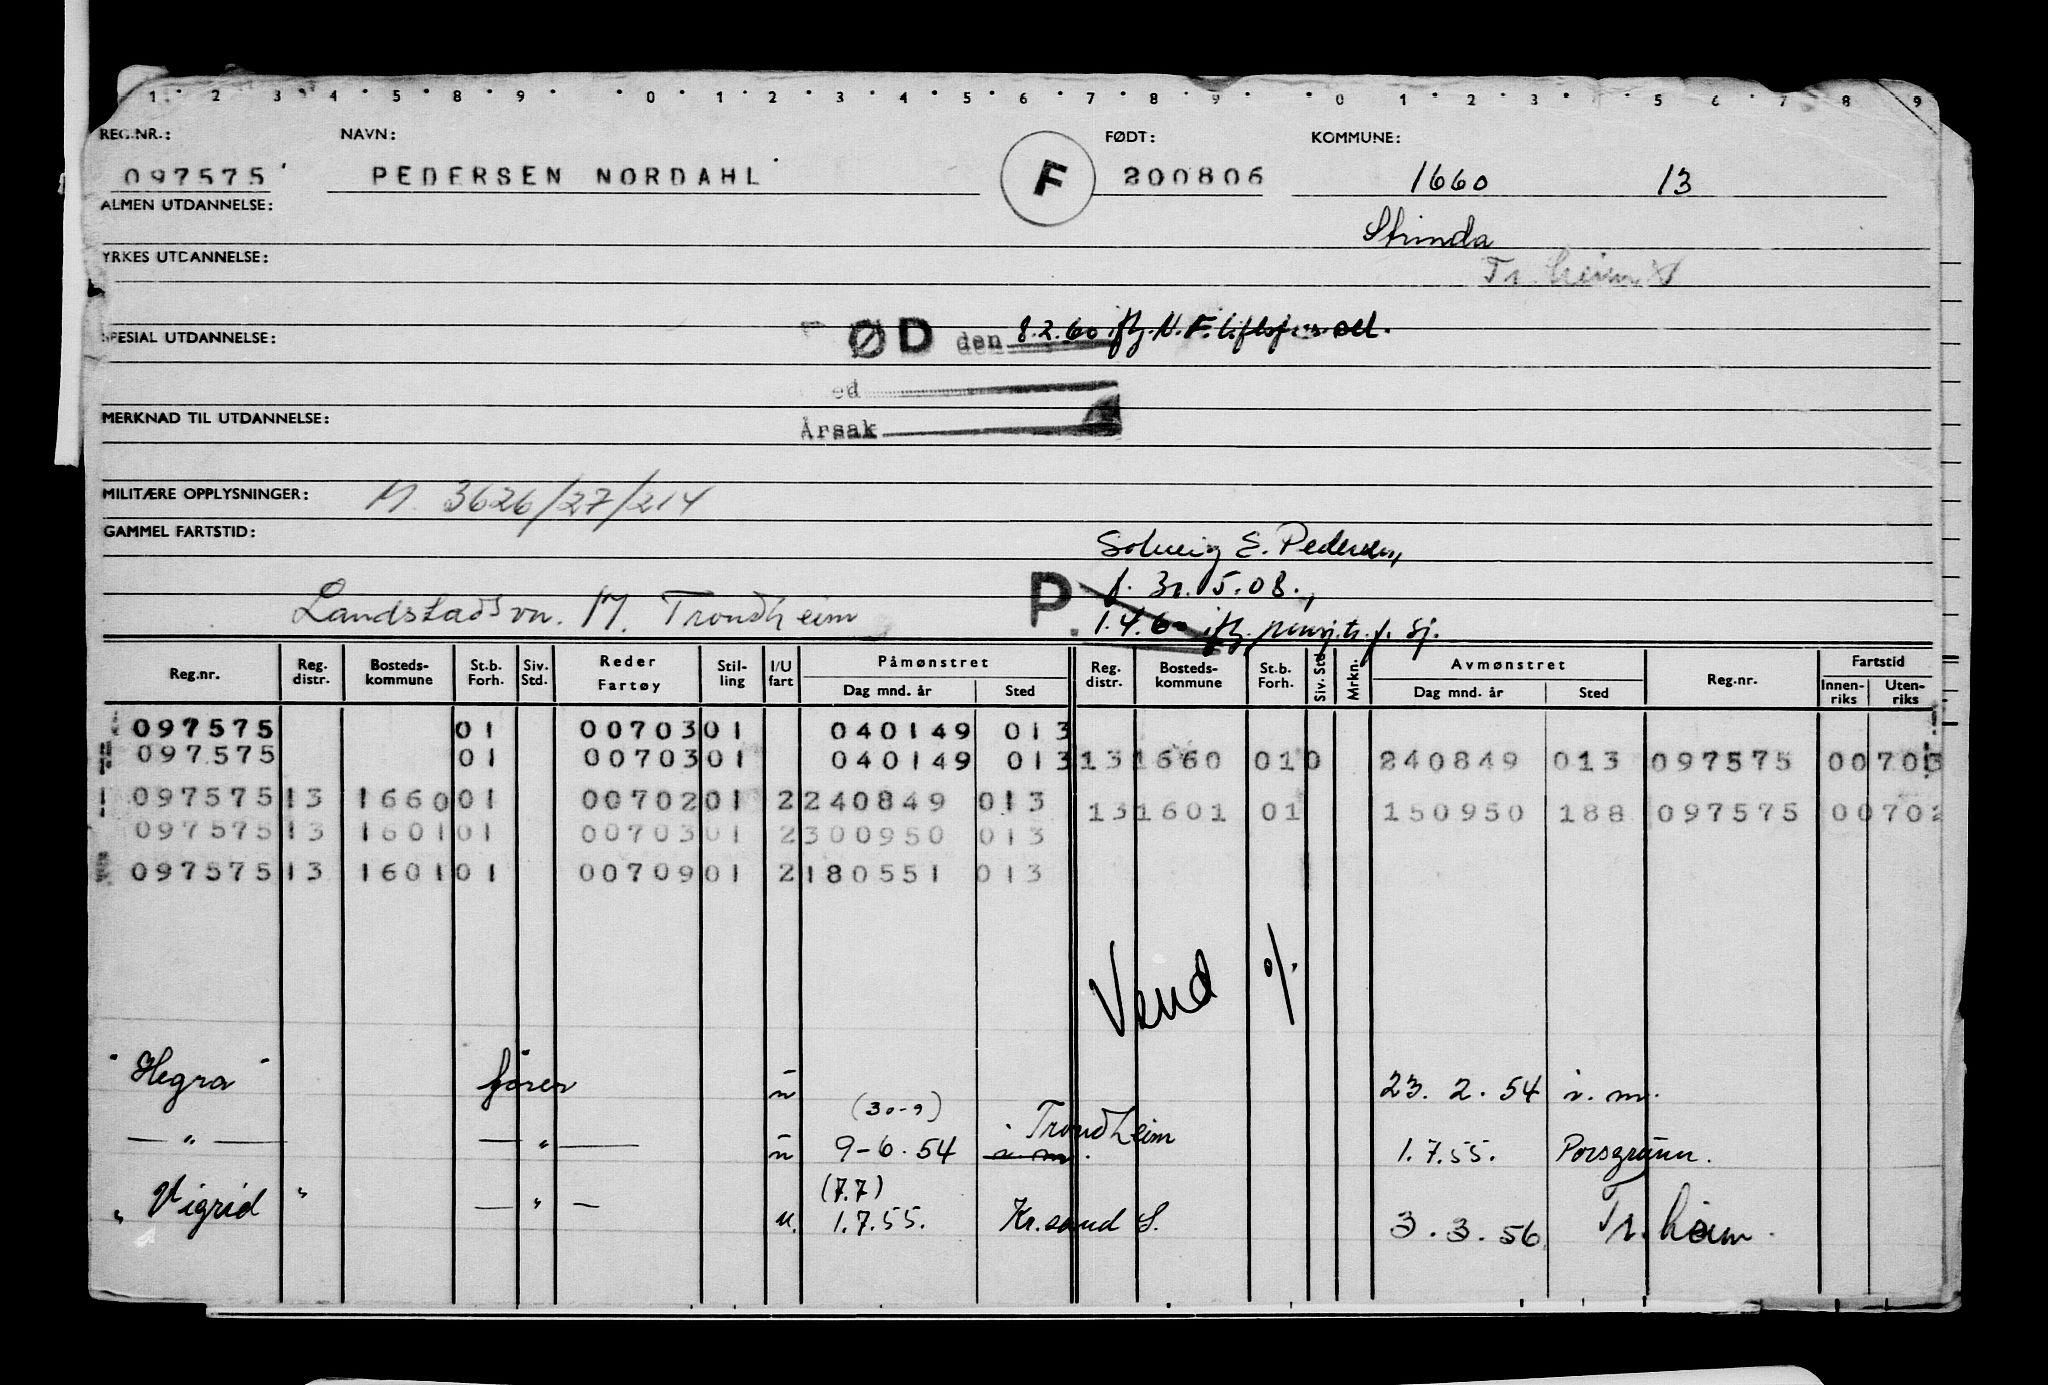 1 2 3 4 5 8 9 0 1 2 3 4 5 6 7 8 9 0 1 2 3 5 6 7 8 9
REG.NR.: NAVN: FØDT: KOMMUNE:
097575 PEDERSEN NORDAHL F 200806 1660 13
ALMEN UTDANNELSE:
Strinda
YRKES UTDANNELSE:
Tr.heim
SPESIAL UTDANNELSE: ØD den 8.2.60 iflg. N.F.
ed
MERKNAD TIL UTDANNELSE: Årsak
MILITÆRE OPPLYSNINGER: M. 3626/27/214
GAMMEL FARTSTID:
Solveig E. Pedersen,
P f. 30.5.08.,
Landstadsvn. 17. Trondheim 1.4.60 iflg. pensj.tr. f. sj.
Reg.nr. Reg. distr. Bosteds-kommune St.b. Forh. Siv. Std. Reder Fartøy Stil-ling I/U fart Påmønstret Dag mnd. år Sted Reg. distr. Bosteds-kommune St.b. Forh. Siv. Std. Mrkn. Avmønstret Dag mnd. år Sted Reg.nr. Fartstid Innen-riks Uten-riks
097575 01 00703 01 040149 013
097575 01 00703 01 040149 013 13 1660 01 0 240849 013 097575 00703
097575 13 1660 01 00702 01 2 240849 013 13 1601 01 150950 188 097575 00702
097575 13 1601 01 00703 01 2 300950 013
097575 13 1601 01 00709 01 2 180551 013
Vend %
"Hegra" fører u 23. 2. 54 i. m.
(30-9) Trondheim
— " — — " — u 9-6.54 i. m. 1.7.55. Porsgrunn.
(7.7)
"Vigrid" — " — u. 1.7.55. Kr.sand S. 3.3.56. Tr.heim.